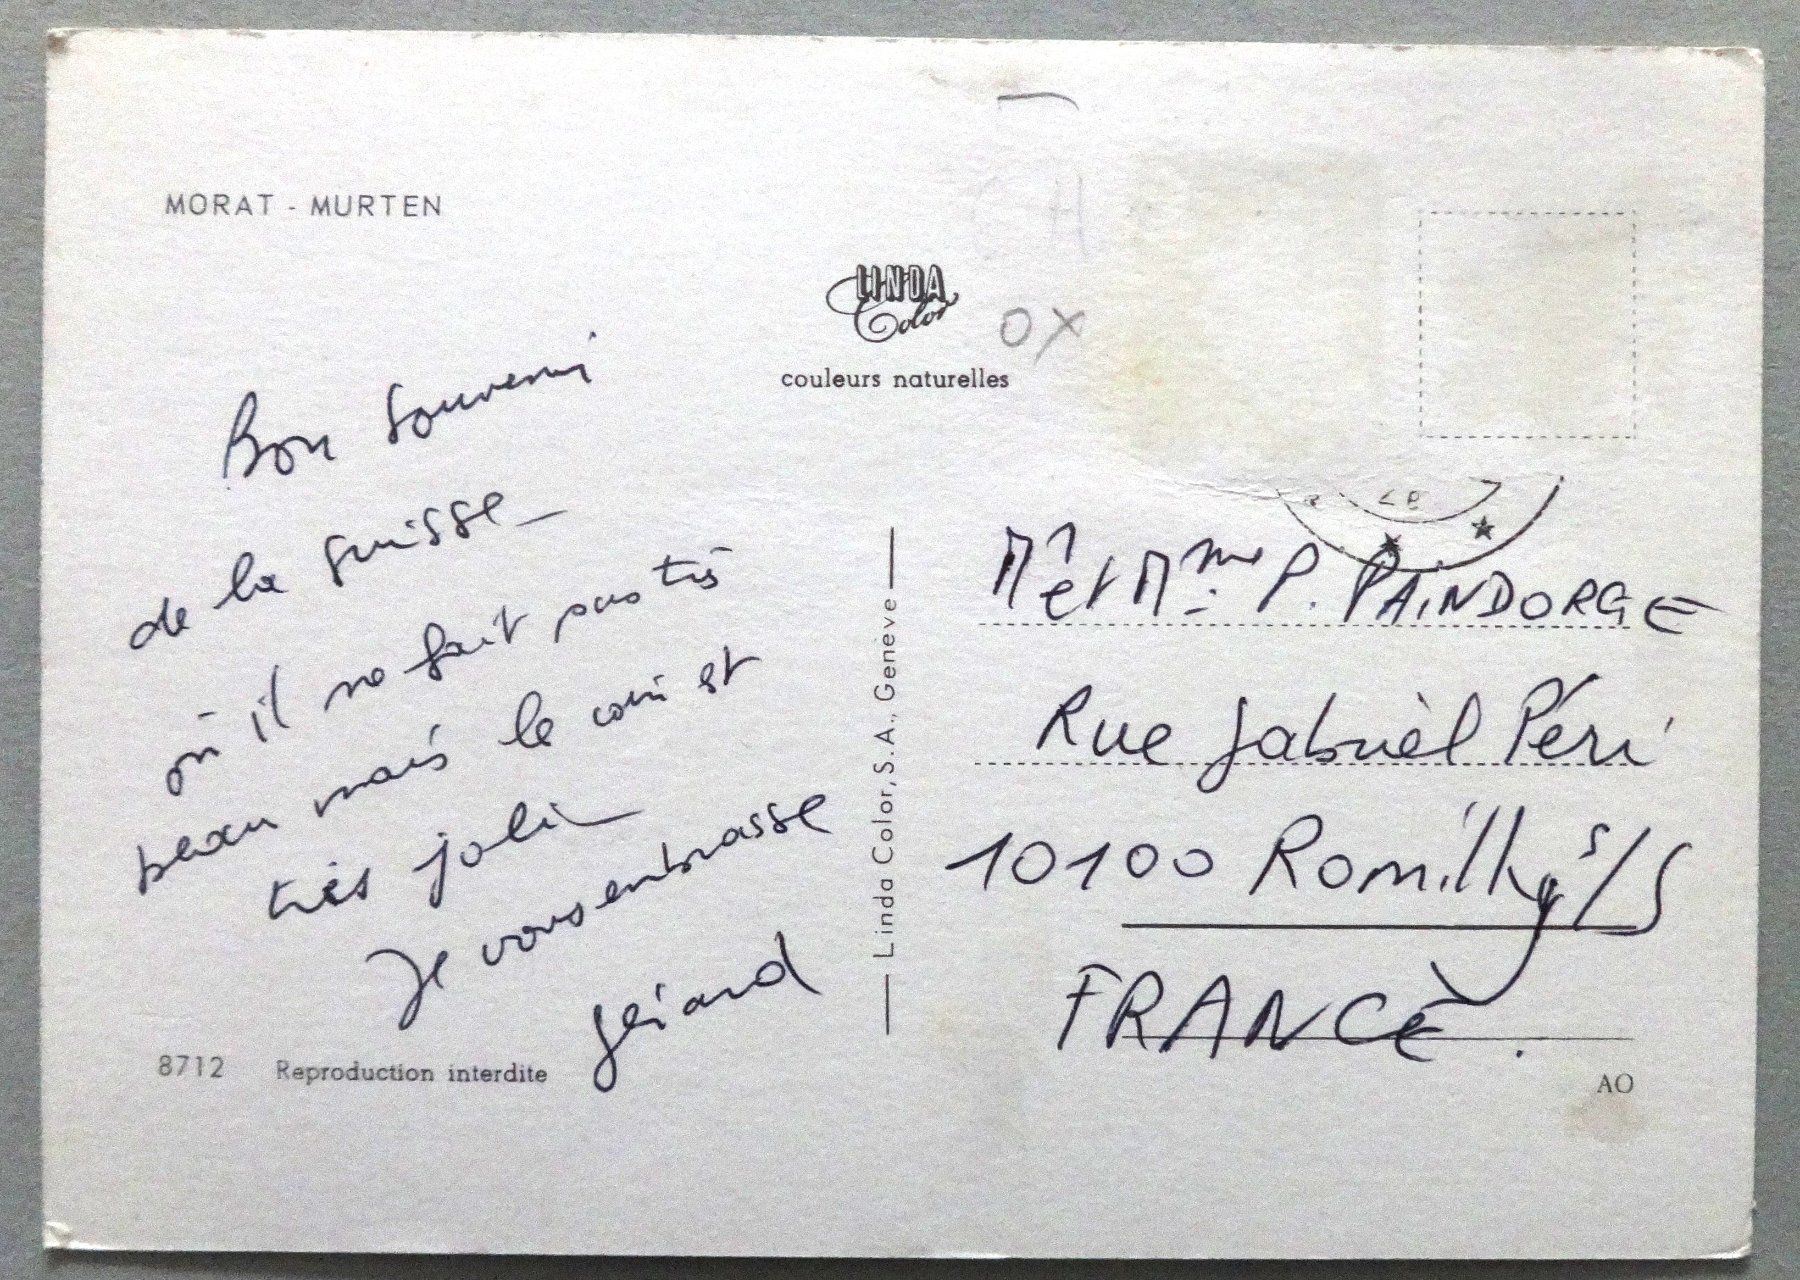 MORAT - MURTEN
LINDA
Color
couleurs naturelles
OX
Bon souvenir
de la suisse_
où il ne fait pas très
beau mais le coin est
très joli_
Je vous embrasse
Gérard
8712 Reproduction interdite
Linda Color, S.A., Genève
Mr et Mme P. PAiNDORGE
Rue Gabrièl Péri
10100 Romilly s/S
FRANCE.
AO